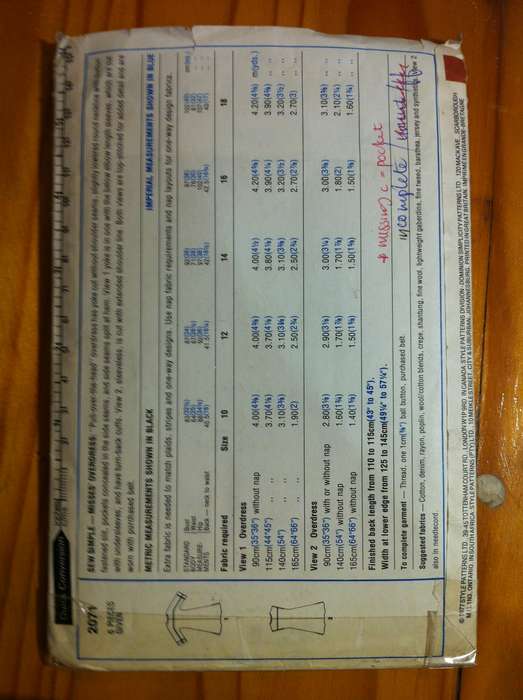 2071
6 PIECES GIVEN
SEW SIMPLE — MISSES' OVERDRESS: "Pull-over-the-head" overdress has yoke cut without shoulder seams, slightly lowered round neckline
fastened slit, pockets concealed in the side seams, and side seams split at hem. View 1 yoke is in one with the below elbow length sleeves, which are cut
with undersleeves, and have turn-back cuffs. View 2, sleeveless, is cut with extended shoulder line. Both views are top-stitched for added detail and are
worn with purchased belt.
METRIC MEASUREMENTS SHOWN IN BLACK IMPERIAL MEASUREMENTS SHOWN IN BLUE
Extra fabric is needed to match plaids, stripes and one-way designs. Use nap fabric requirements and nap layouts for one-way design fabrics.
STANDARD Bust
BODY Waist
MEASURE Hip
MENTS Back — neck to waist
Fabric required Size 10 12 14 16 18
View 1 Overdress
90cm(35"36") without nap 4.00(4⅜) 4.00(4⅜) 4.00(4½) 4.20(4⅝) 4.20(4⅝) m(yds.)
115cm(44"45") .. .. 3.70(4⅛) 3.70(4⅛) 3.80(4⅛) 3.90(4¼) 3.90(4⅜) .. ..
140cm(54") .. .. 3.10(3⅜) 3.10(3⅜) 3.10(3⅜) 3.20(3½) 3.20(3½) .. ..
165cm(64"66") .. .. 1.90(2) 2.50(2¾) 2.50(2¾) 2.70(2⅞) 2.70(3) .. ..
View 2 Overdress
90cm(35"36") with or without nap 2.80(3⅛) 2.90(3⅛) 3.00(3¼) 3.00(3⅜) 3.10(3⅜) .. ..
140cm(54") without nap 1.60(1¾) 1.70(1⅞) 1.70(1⅞) 1.80(2) 2.10(2¼) .. ..
165cm(64"66") without nap 1.40(1⅝) 1.50(1⅝) 1.50(1⅝) 1.50(1⅝) 1.60(1¾) .. ..
Finished back length from 110 to 115cm(43" to 45").
Width at lower edge from 125 to 145cm(49¼" to 57¼").
missing c = pocket
incomplete
To complete garment — Thread, one 1cm(⅜") ball button, purchased belt.
Suggested fabrics — Cotton, denim, rayon, poplin, wool/cotton blends, crepe, shantung, fine wool, lightweight gaberdine, fine tweed, barathea, jersey and synthetics. View 2
also in needlecord.
© 1977 STYLE PATTERNS LTD., 39-45 TOTTENHAM COURT RD., LONDON W1P 9RD. IN CANADA: STYLE PATTERNS DIVISION - DOMINION SIMPLICITY PATTERNS LTD. 120 MACK AVE., SCARBOROUGH
ONTARIO. IN SOUTH AFRICA: STYLE PATTERNS (PTY) LTD., 10 MEIKLE STREET, CITY & SUBURBAN, JOHANNESBURG. PRINTED IN GREAT BRITAIN. IMPRIMÉ EN GRANDE-BRETAGNE
1
2